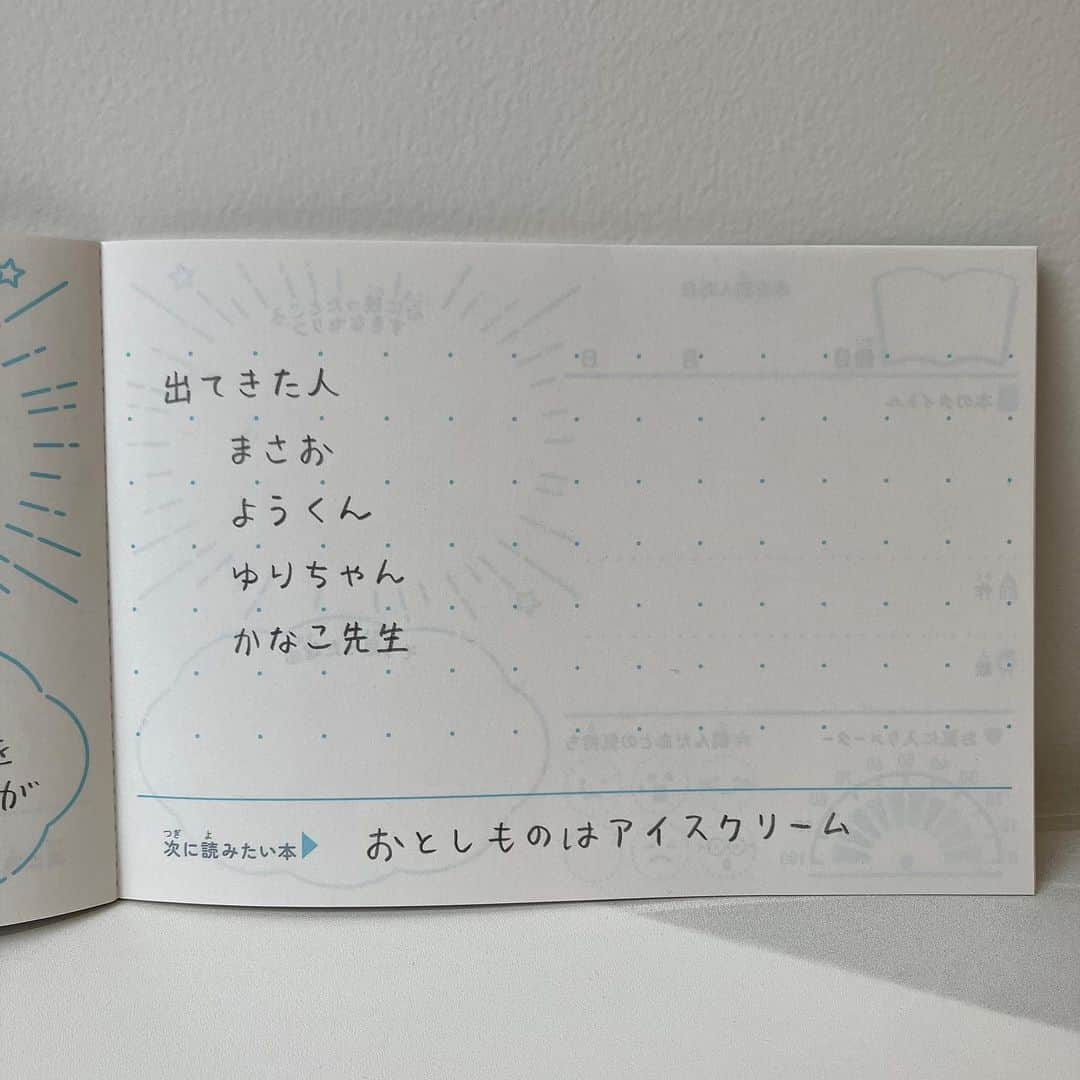 出てきた人
まさお
ようくん
ゆりちゃん
かなこ先生
つぎ よ
次に読みたい本▶ おとしものはアイスクリーム
を
が